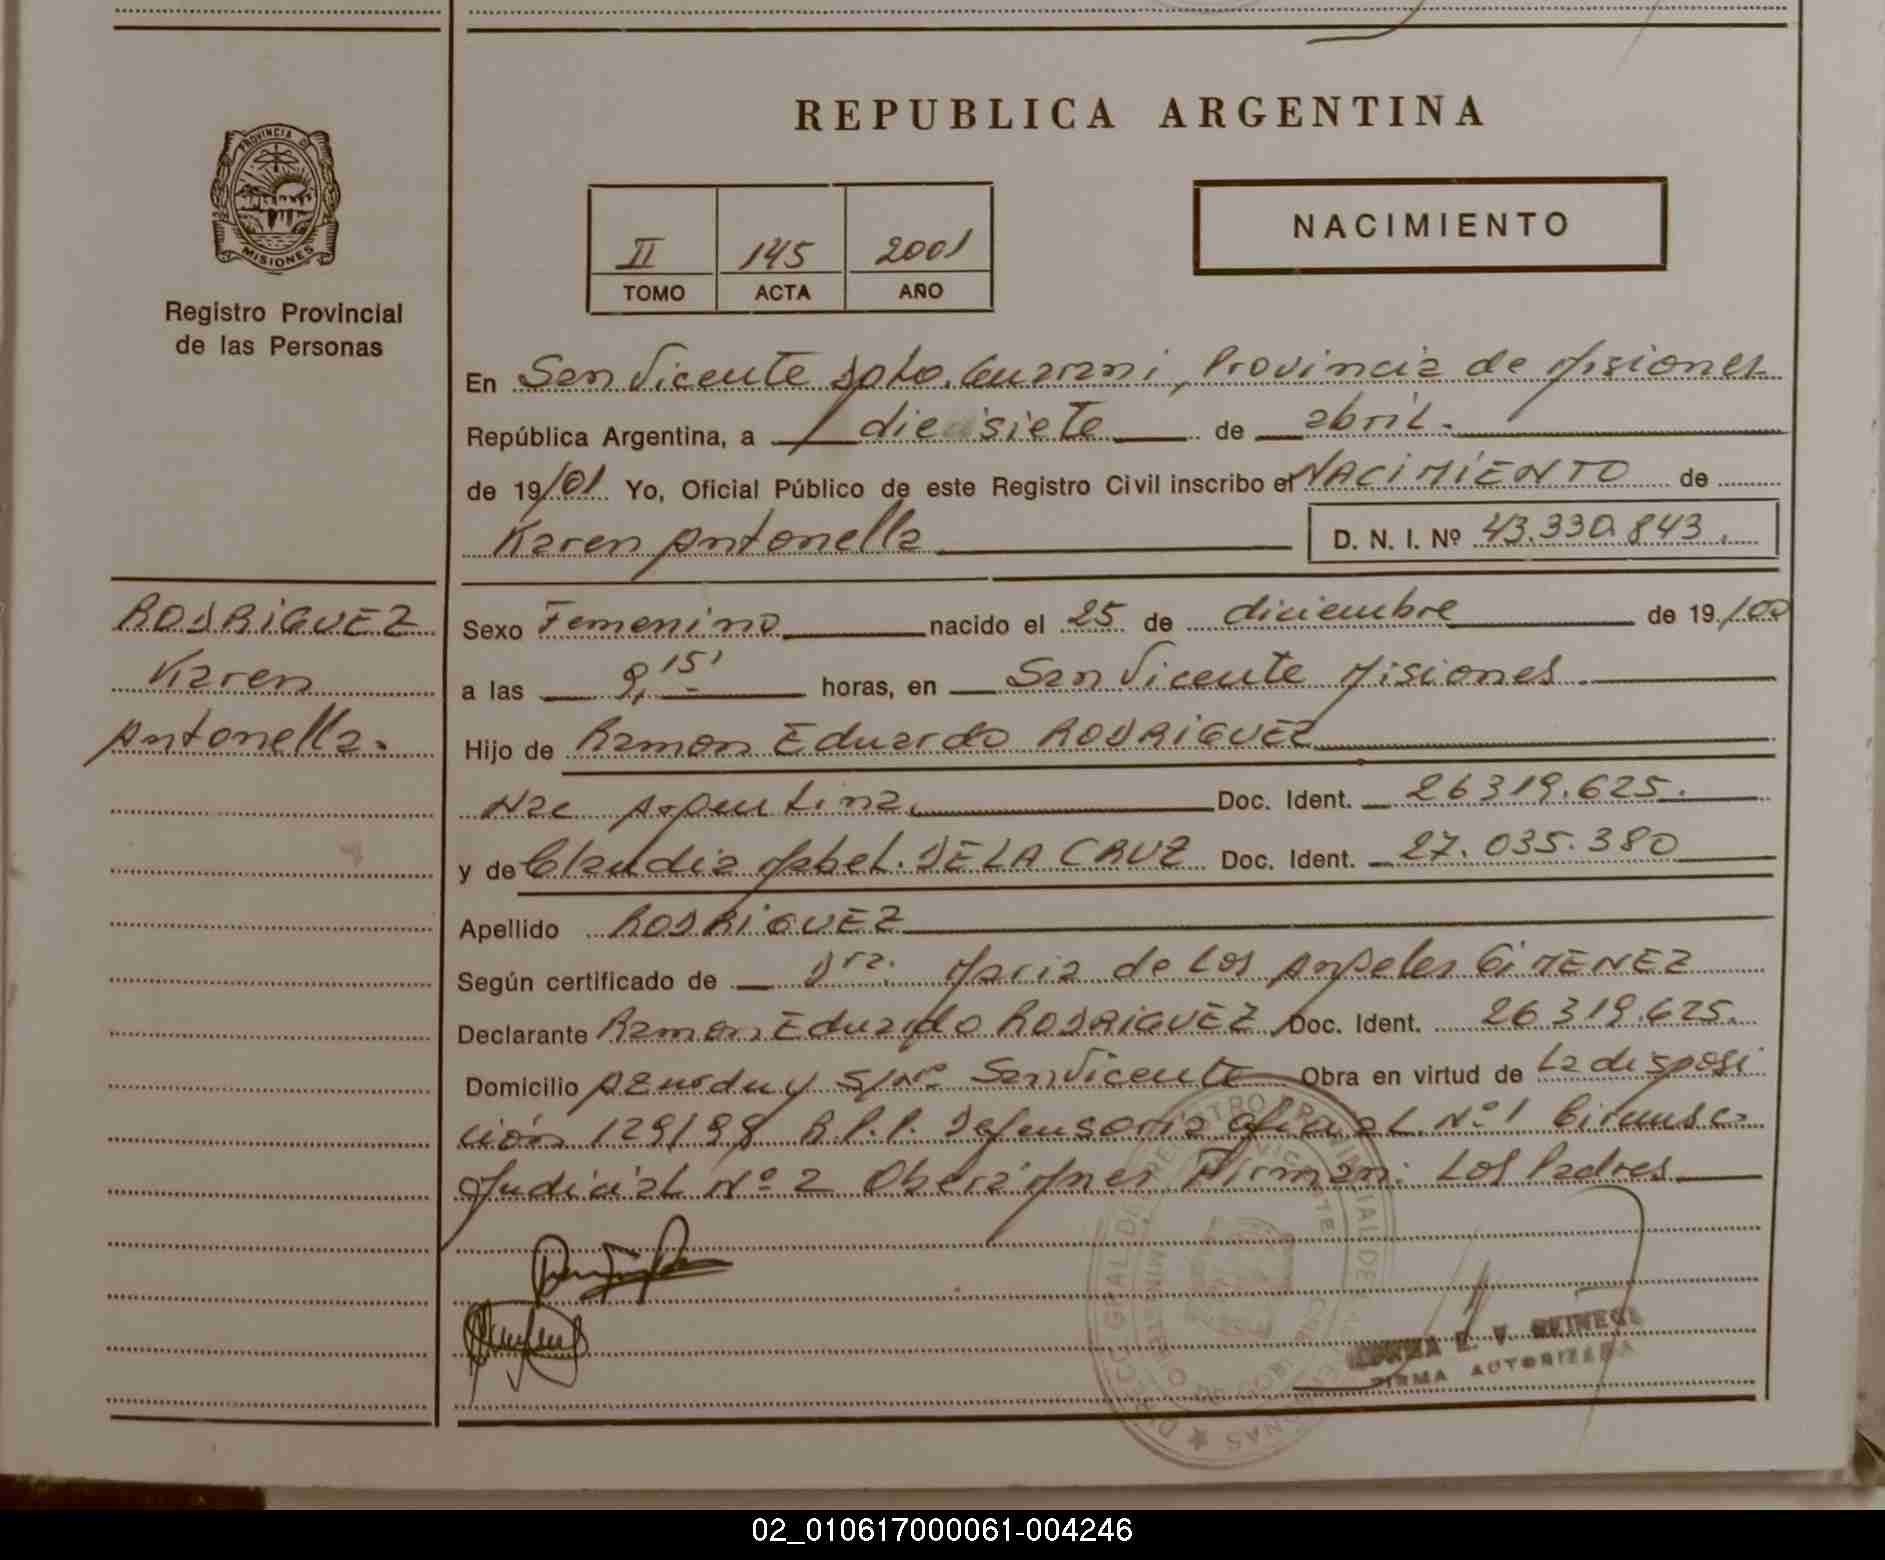 REPUBLICA ARGENTINA
PROVINCIA DE
MISIONES
Registro Provincial
de las Personas
II 145 2001
TOMO ACTA AÑO
NACIMIENTO
En San Vicente Dpto. Guarani, Provincia de Misiones
República Argentina, a diecisiete de abril.
de 19/01 Yo, Oficial Público de este Registro Civil inscribo el NACIMIENTO de
Karen Antonella D. N. I. Nº 43.330.843.
RODRIGUEZ
Karen
Antonella.
Sexo Femenino nacido el 25 de diciembre de 19/00
a las 9,15' horas, en San Vicente Misiones.
Hijo de Ramon Eduardo RODRIGUEZ
Nac Argentina. Doc. Ident. 26319.625.
y de Claudia Mabel. DE LA CRUZ Doc. Ident. 27.035.380
Apellido RODRIGUEZ
Según certificado de Dra. Maria de Los Angeles GIMENEZ
Declarante Ramon Eduardo RODRIGUEZ Doc. Ident. 26319.625.
Domicilio Azurduy S/Nº San Vicente Obra en virtud de La disposi
ción 129/99 R.P.P. Defensoria Oficial Nº 1 Circunsc.
Judicial Nº 2 Obera Mnes Firman: Los Padres.
FIRMA AUTORIZADA
02_010617000061-004246